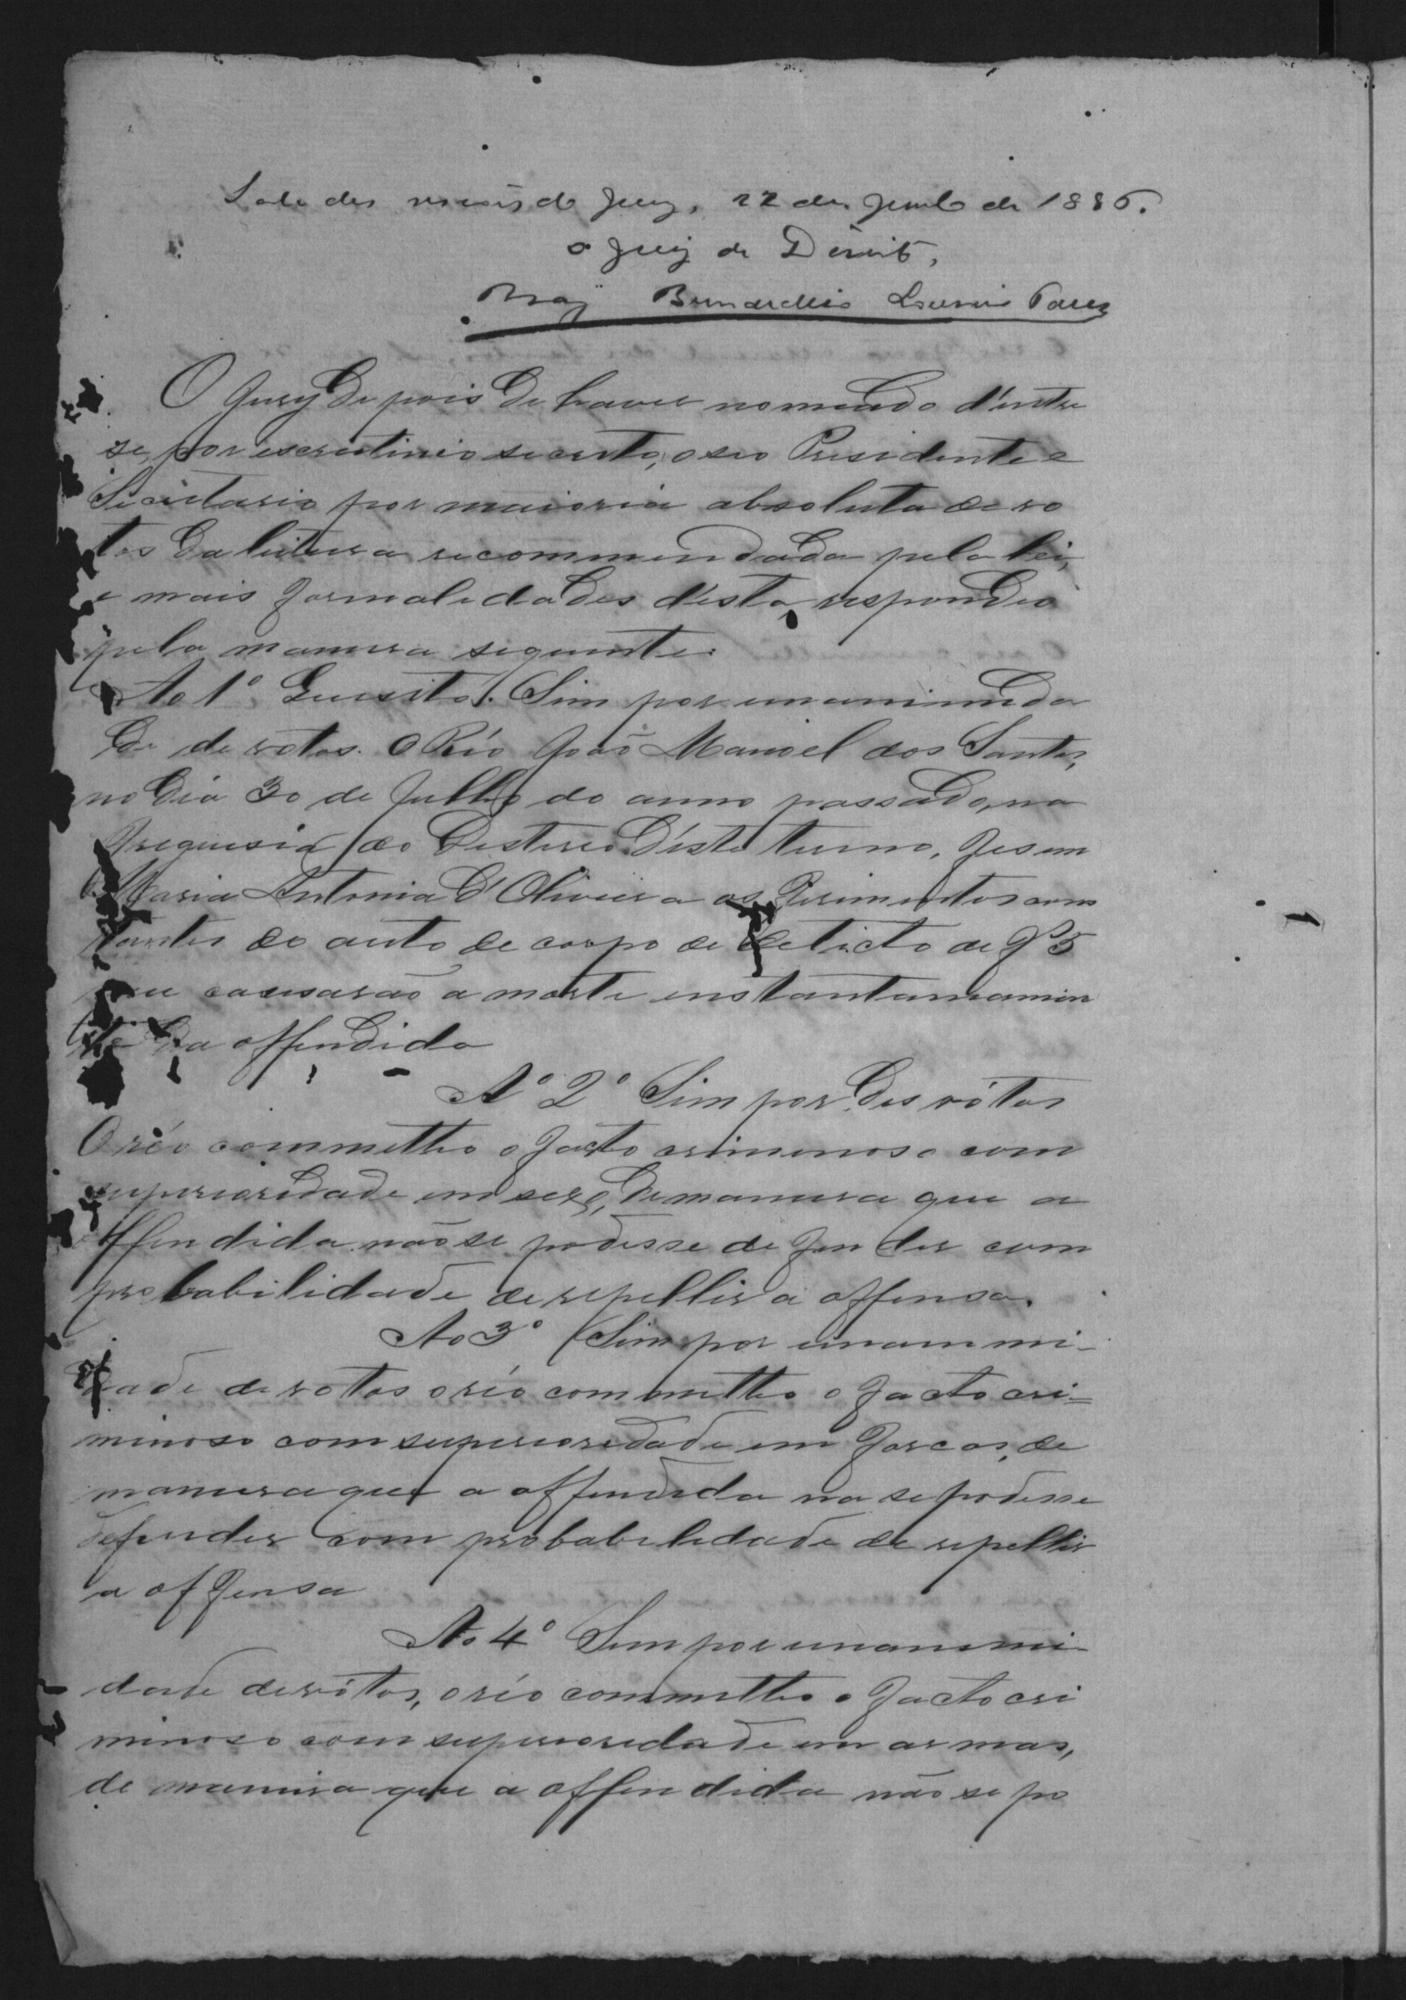 Sala das sessões do Jury, 22 de Junho de 1886.
O Juiz de Direito,
Braz Bernardino Loureiro Tavares
O Jury depois de haver nomeado d'entre
se, por escrutinio secreto, o seo Presidente e
Secretario por maioria absoluta de vo
tos da leitura recommendada pela lei,
e mais formalidades d'esta, respondeo
pela maneira seguinte:
Ao 1º Quesito. Sim por unanimida
de de votos. O Réo João Manoel dos Santos,
no dia 30 de Julho do anno passado, na
freguesia do Desterro d'este termo, fes em
Maria Antonia d'Oliveira os ferimentos cons
tantes do auto de corpo de delicto de fs 5
que causarão a morte instantaneamen
te da offendida
Ao 2º Sim por des vótos
O réo commetteo o facto criminoso com
superioridade em sexo, de maneira que a
offendida não se podesse defender com
probabilidade de repellir a offensa.
Ao 3º Sim por unanimi-
dade de votos o réo commetteo o facto cri=
minoso com superioridade em forcas, de
maneira que a offendida na se podesse
defender com probabilidade de repellir
a offensa
Ao 4º Sim por unanimi-
dade de vótos, o réo commetteo o facto cri
minoso com superioridade em armas,
de maneira que a offendida não se po